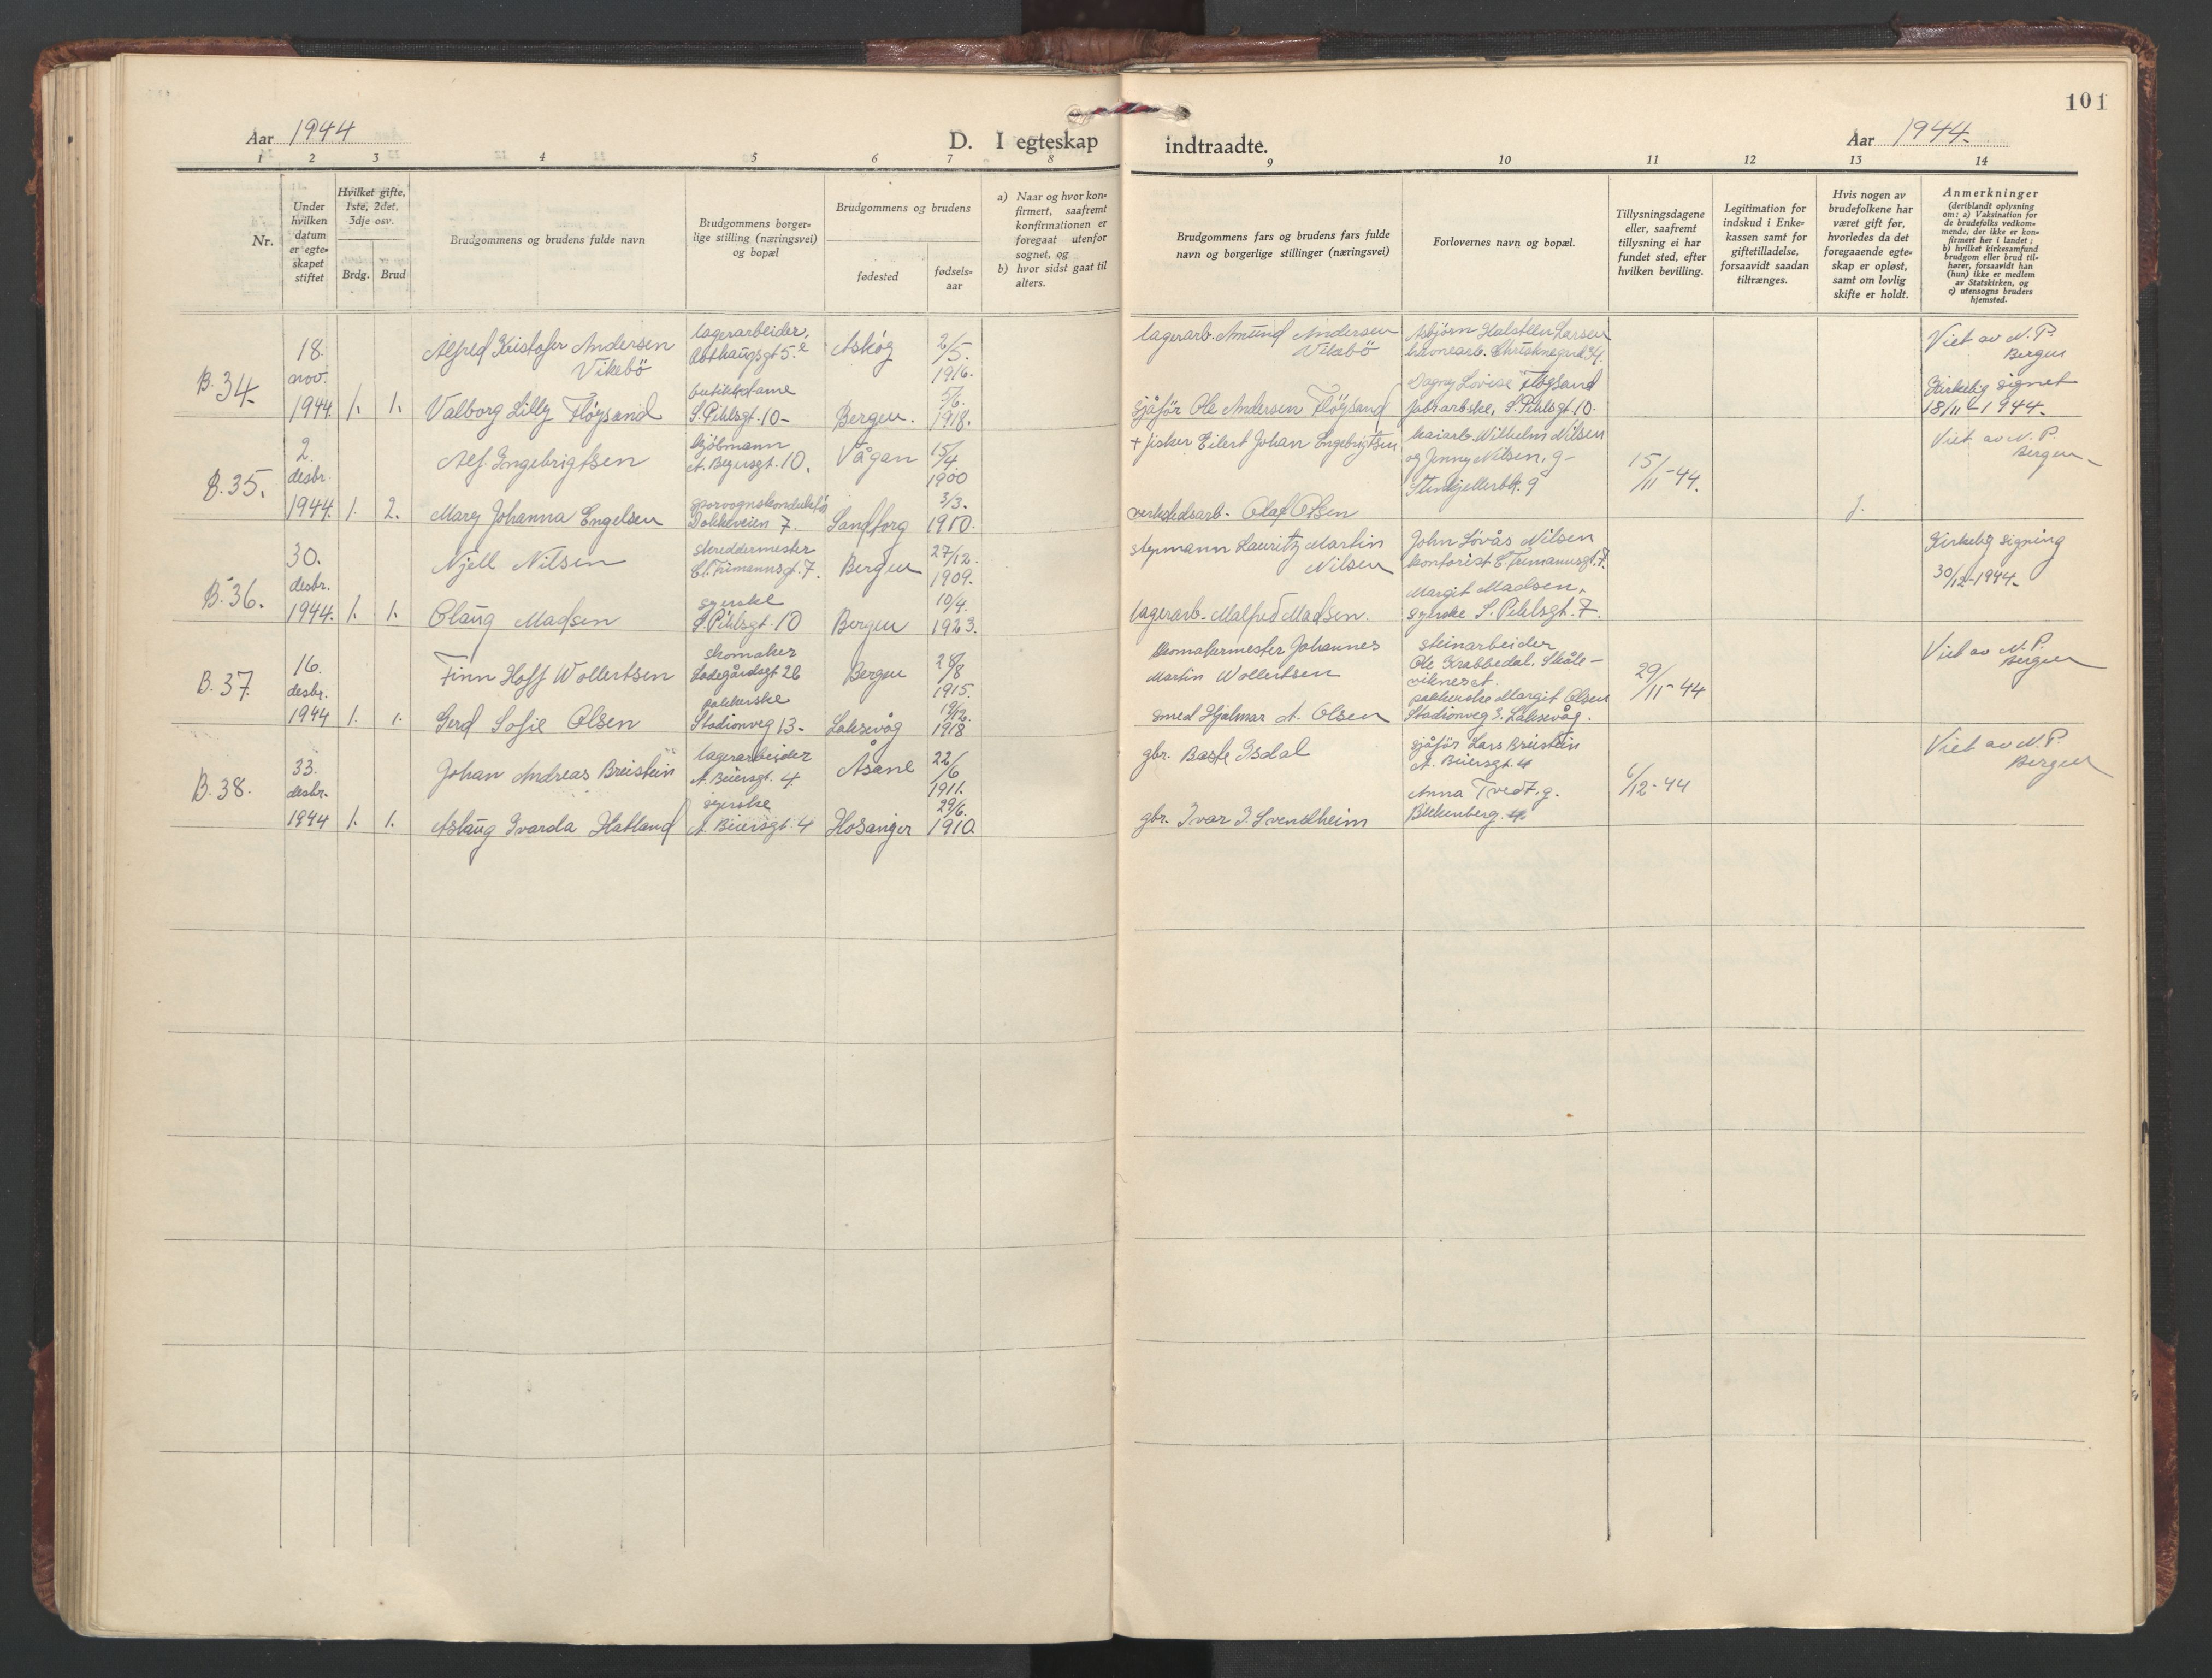 101
Aar 1944
D. I egteskap indtraadte.
Aar 1944.
1 2 3 4 5 6 7 8 9 10 11 12 13 14
Nr.
Under
hvilken
datum
er egte-
skapet
stiftet
Hvilket gifte,
1ste, 2det,
3dje osv.
Brdg. Brud
Brudgommens og brudens fulde navn
Brudgommens borger-
lige stilling (næringsvei)
og bopæl
Brudgommens og brudens
fødested
fødsels-
aar
a) Naar og hvor kon-
firmert, saafremt
konfirmationen er
foregaat utenfor
sognet, og
b) hvor sidst gaat til
alters.
Brudgommens fars og brudens fars fulde
navn og borgerlige stillinger (næringsvei)
Forlovernes navn og bopæl.
Tillysningsdagene
eller, saafremt
tillysning ei har
fundet sted, efter
hvilken bevilling.
Legitimation for
indskud i Enke-
kassen samt for
giftetilladelse,
forsaavidt saadan
tiltrænges.
Hvis nogen av
brudefolkene har
været gift før,
hvorledes da det
foregaaende egte-
skap er opløst,
samt om lovlig
skifte er holdt.
Anmerkninger
(deriblandt oplysning
om: a) Vaksination for
de brudefolks vedkom-
mende, der ikke er kon-
firmert her i landet;
b) hvilket kirkesamfund
brudgom eller brud til-
hører, forsaavidt han
(hun) ikke er medlem
av Statskirken, og
c) utensogns bruders
hjemsted.
B. 34.
18.
nov.
1944
1. 1.
Alfred Kristofer Andersen
Vikebö
lagerarbeider,
Askøg
2/5.
1916.
lagerarb. Amund Andersen
Vikebö
Asbjørn Halsteen Larsen
Viet av N. P.
Bergen
Valborg Lilly Flöysand
butikkdame
S. Pihlsgt. 10-
Bergen.
5/6.
1918.
sjåför Ole Andersen Flöysand
Dagny Lovise Flögsand
fabrarbske, S. Pihlsgt. 10.
Kirkelig signet
18/11-1944.
B. 35.
2.
desbr.
1944.
1. 2.
Alf Engebrigtsen
A. Beyersgt. 10.
Vågan
15/4
1900
+ fisker Eilert Johan Engebrigtsen
kaiarb. Wilhelm Nilsen
og Jenny Nilsen, g-
Stinkjellerbk. 9
15/11-44.
Viet av N. P.
Bergen
Mary Johanna Engelsen
sporvognskonduktör
Dokkeveien 7.
Landborg
3/3.
1910.
verkstedsarb. Olaf Olsen
B. 36.
30.
desbr.
1944.
1. 1.
Njell Nilsen
skreddermester
Bergen
27/12.
1909.
styrmann Lauritz Martin
Nilsen
John Lövås Nilsen
Kirkelig signing
30/12-1944.
Olaug Madsen
syerske
S. Pihlsgt. 10
Bergen
10/4.
1923.
lagerarb. Malfred Madsen.
Margit Madsen,
syerske S. Pihlsgt. 7.
B. 37.
16.
desbr.
1944
1. 1.
Finn Hoff Wollertsen
skomaker
Ladegårdsgt 26
Bergen
28/8
1915.
skomakermester Johannes
Martin Wollertsen
steinarbeider
Ole Krabbedal, Skåle-
vikneset.
29/11-44
Viet av N. P.
Bergen
Gerd Sofie Olsen
pakkerske
Stadionveg 13-
Laksevåg
19/12.
1918
smed Hjalmar A. Olsen
pakkerske Margit Olsen
Stadionveg 3. Laksevåg.
B. 38.
33.
desbr.
1944
1. 1.
Johan Andreas Breistein
lagerarbeider
A. Beiersgt. 4.
Åsane
22/6
1911.
gbr. Baste Isdal
sjåför Lars Breistein
A. Beiersgt. 4
6/12-44
Viet av N. P.
Bergen
Aslaug Ivarda Hatland
syerske
A. Beiersgt. 4
Hosanger
29/6.
1910.
gbr. Ivar J. Svendheim
Anna Tvedt. g.
Blekenberg.